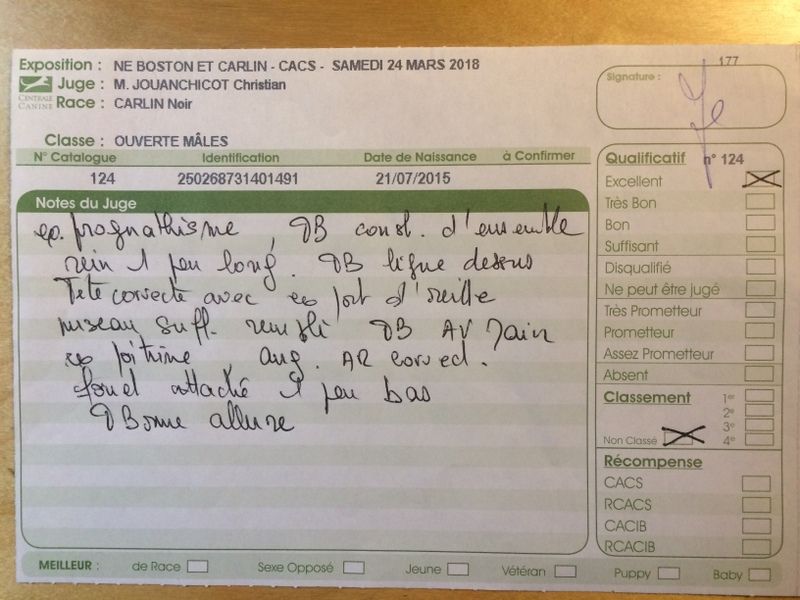 Exposition : NE BOSTON ET CARLIN - CACS - SAMEDI 24 MARS 2018
Juge : M. JOUANCHICOT Christian
CENTRALE CANINE
Race : CARLIN Noir
Classe : OUVERTE MÂLES
177
Signature :
N° Catalogue Identification Date de Naissance à Confirmer
124 250268731401491 21/07/2015
Notes du Juge
ex. prognathisme, TB const. d'ensemble
rein 1 peu long. TB ligne dessus
Tete correcte avec ex port d'oreille
museau suff. rempli TB AV main
ex poitrine ang. AR correct.
fouet attaché 1 peu bas
TBonne allure
Qualificatif n° 124
Excellent
Très Bon
Bon
Suffisant
Disqualifié
Ne peut être jugé
Très Prometteur
Prometteur
Assez Prometteur
Absent
Classement 1er
2e
3e
Non Classé 4e
Récompense
CACS
RCACS
CACIB
RCACIB
MEILLEUR : de Race Sexe Opposé Jeune Vétéran Puppy Baby